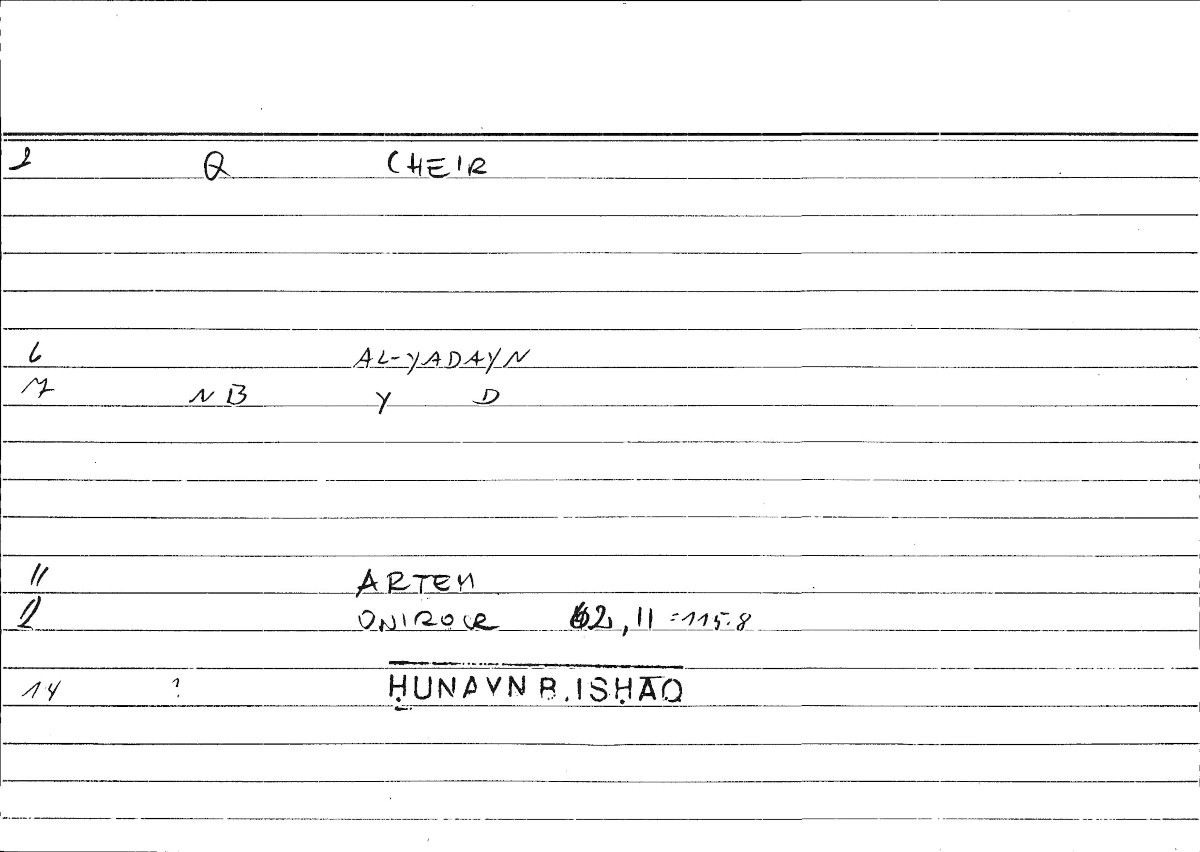 1 Q CHEIR
6 AL-YADAYN
7 NB Y D
11 ARTEM
2 ONIROCR 62,11 =115.8
14 ? ḤUNAYN B. ISḤĀQ